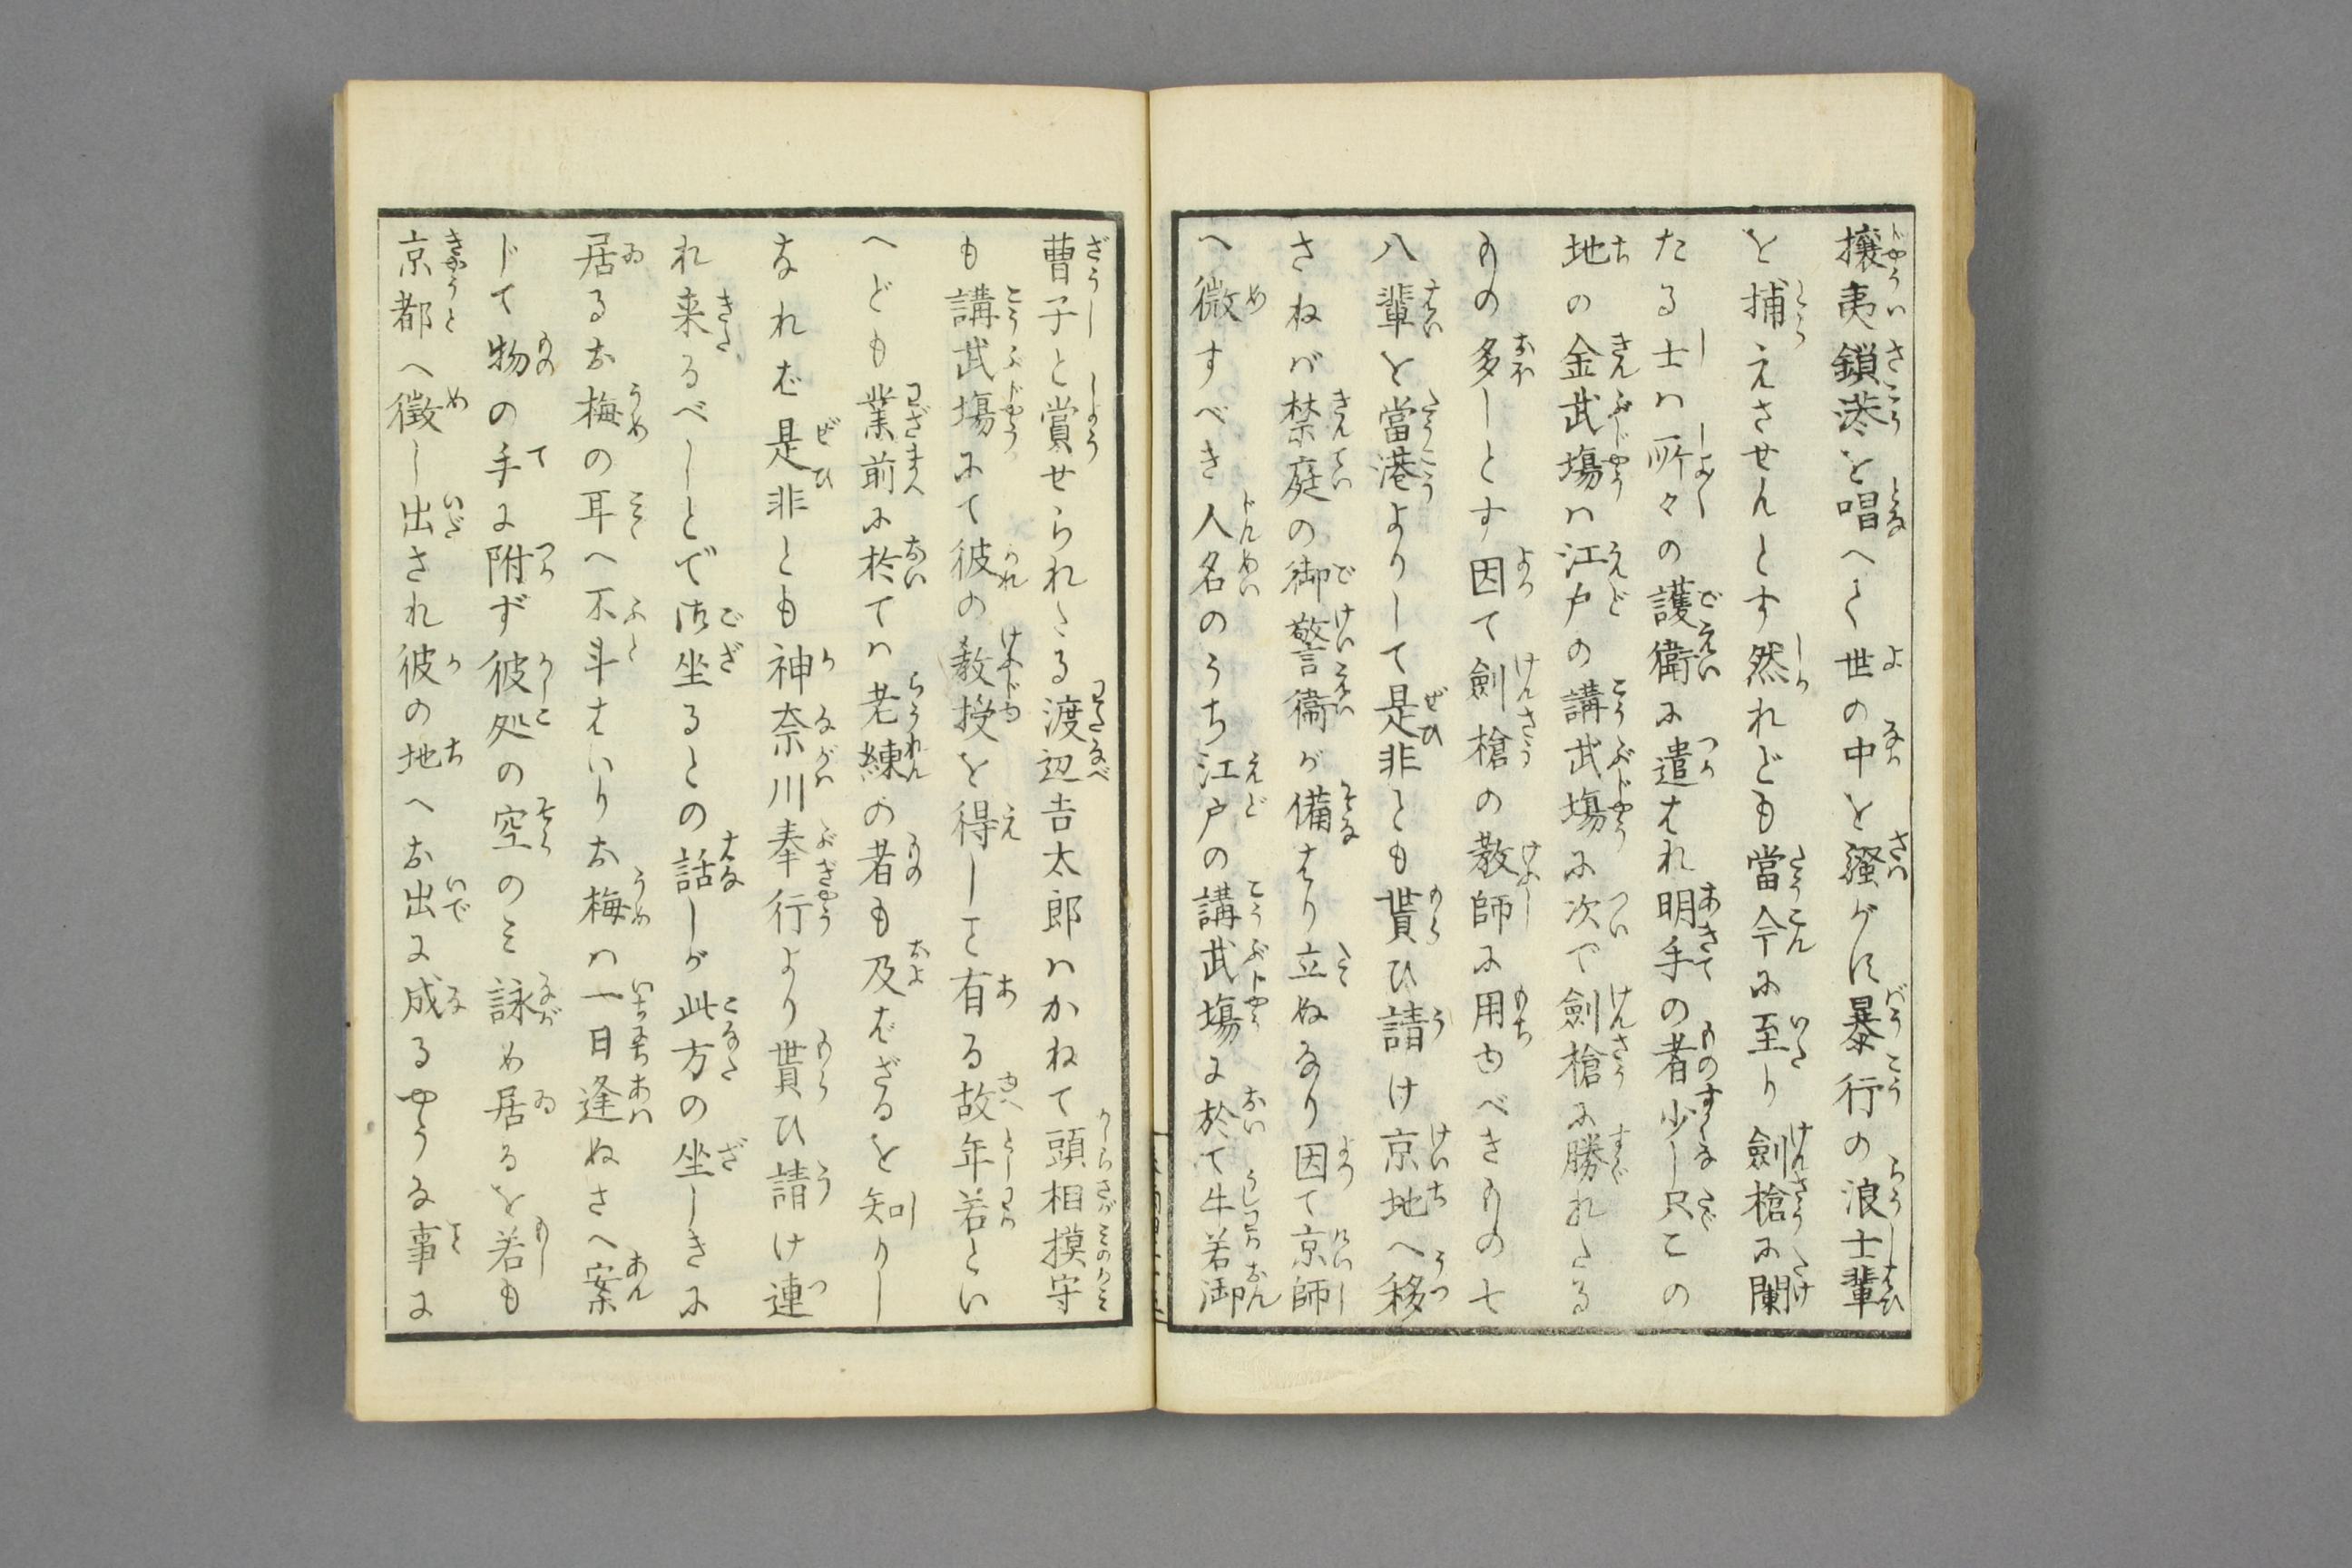 攘夷鎖港を唱へて世の中を騒がに暴行の浪士輩
を捕えさせんとす然れども當今に至り劍槍に闌
たる士ハ所々の護衛に遣はれ明手の者少し只この
地の金武塲ハ江戸の講武塲に次で劍槍に勝れたる
ものゝ多しとす因て劍槍の教師に用ゆべきもの七
八輩を當港よりして是非とも貰ひ請け京地へ移
さねバ禁庭の御警衞が備はり立ぬなり因て京師
へ徴すべき人名のうち江戸の講武塲に於て牛若御
曹子と賞せられたる渡辺吉太郎ハかねて頭相摸守
も講武塲にて彼の教授を得しこと有る故年若とい
へども業前に於てハ老練の者も及ばざるを知りし
なれば是非とも神奈川奉行より貰ひ請け連
れ来るべしとで御坐るとの話しが此方の坐しきに
居るお梅の耳へ不斗はいりお梅ハ一日逢ぬさへ案
じて物の手に附ず彼処の空のミ詠め居るを若も
京都へ徴し出され彼の地へお出に成るやうな事に